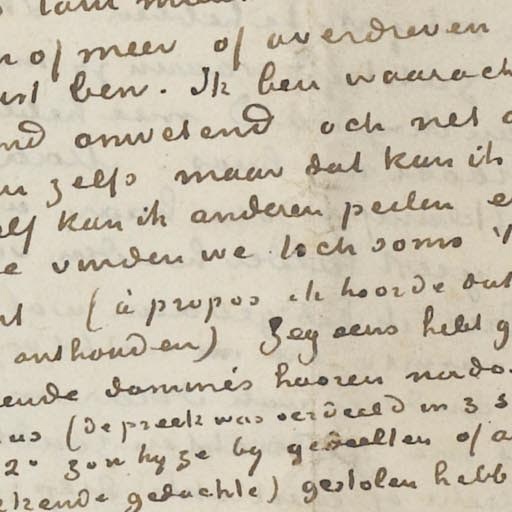 n of meer of overdreven
ust ben. Ik ben waarach
nd onwetend och net
zelfs maar dat kan ik
elf kan ik anderen peilen e
e vinden we toch soms
(à propos ik hoorde dat
onthouden) Zeg eens hebt g
ende dominés hooren
(de preek was verdeeld in 3 s
2° zon hy ze by gedeelten of a
kende gedachte) gestolen hebb